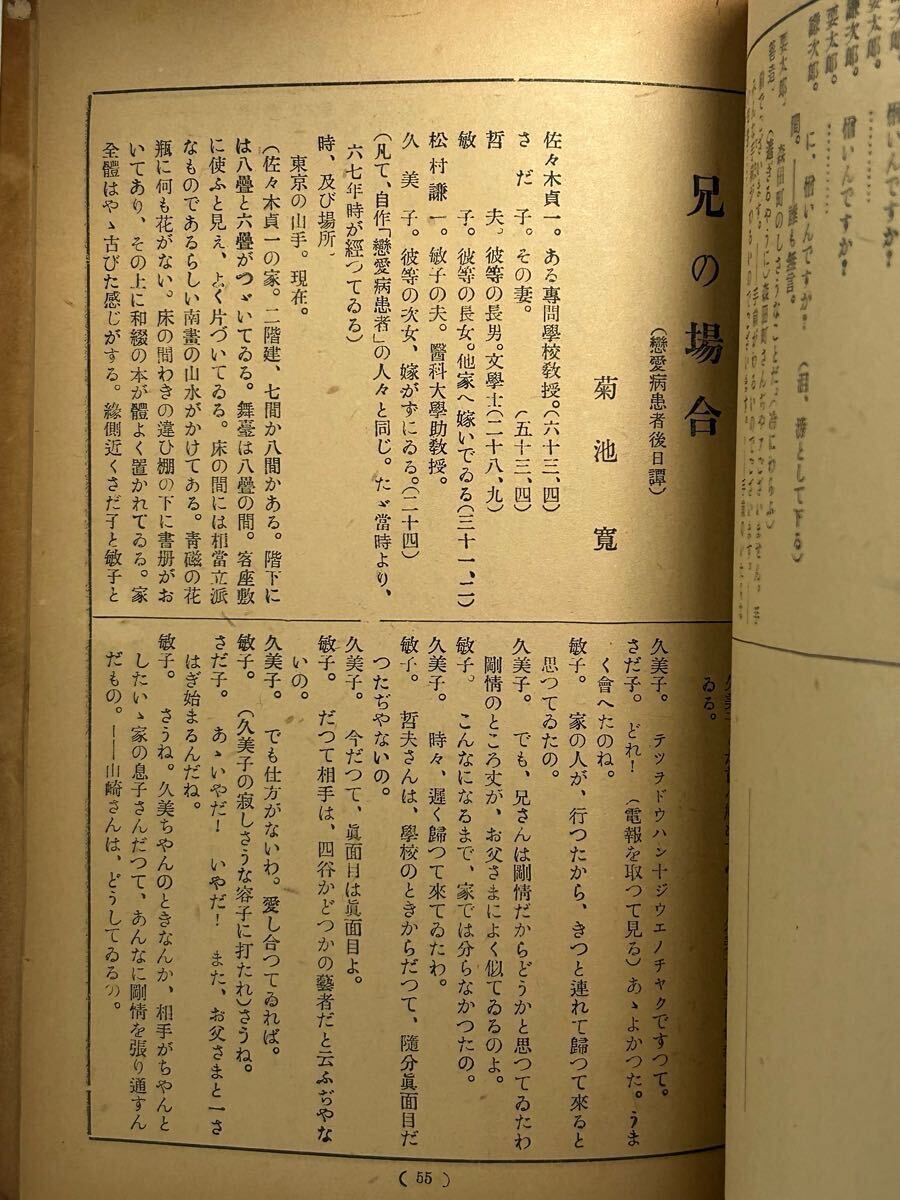 兄の場合
(戀愛病患者後日譚)
菊池寬
佐々木貞一。ある專問學校敎授。(六十三、四)
さだ子。その妻。(五十三、四)
哲夫。彼等の長男。文學士(二十八、九)
敏子。彼等の長女。他家へ嫁いでゐる(三十一、二)
松村謙一。敏子の夫。醫科大學助敎授。
久美子。彼等の次女、嫁がずにゐる。(二十四)
(凡て、自作「戀愛病患者」の人々と同じ。たゞ當時より、
六七年時が經つてゐる)
時、及び場所。
東京の山手。現在。
(佐々木貞一の家。二階建、七間か八間かある。階下に
は八疊と六疊がつゞいてゐる。舞臺は八疊の間。客座敷
に使ふと見え、よく片づいてゐる。床の間には相當立派
なものであるらしい南畫の山水がかけてある。靑磁の花
瓶に何も花がない。床の間わきの違ひ棚の下に書册がお
いてあり、その上に和綴の本が體よく置かれてゐる。家
全體はやゝ古びた感じがする。緣側近くさだ子と敏子と
ゐる。
久美子。テツヲドウハン十ジウエノチヤクですつて。
さだ子。どれ!(電報を取つて見る)あゝよかつた。うま
く會へたのね。
敏子。家の人が、行つたから、きつと連れて歸つて來ると
思つてゐたの。
久美子。でも、兄さんは剛情だからどうかと思つてゐたわ
剛情のところ丈が、お父さまによく似てゐるのよ。
敏子。こんなになるまで、家では分らなかつたの。
久美子。時々、遲く歸つて來てゐたわ。
敏子。哲夫さんは、學校のときからだつて、隨分眞面目だ
つたぢやないの。
久美子。今だつて、眞面目は眞面目よ。
敏子。だつて相手は、四谷かどつかの藝者だと云ふぢやな
いの。
久美子。でも仕方がないわ。愛し合つてゐれば。
敏子。(久美子の寂しさうな容子に打たれ)さうね。
さだ子。あゝいやだ!いやだ!また、お父さまと一さ
はぎ始まるんだね。
敏子。さうね。久美ちやんのときなんか、相手がちやんと
したいゝ家の息子さんだつて、あんなに剛情を張り通すん
だもの。――山崎さんは、どうしてゐるの。
(55)